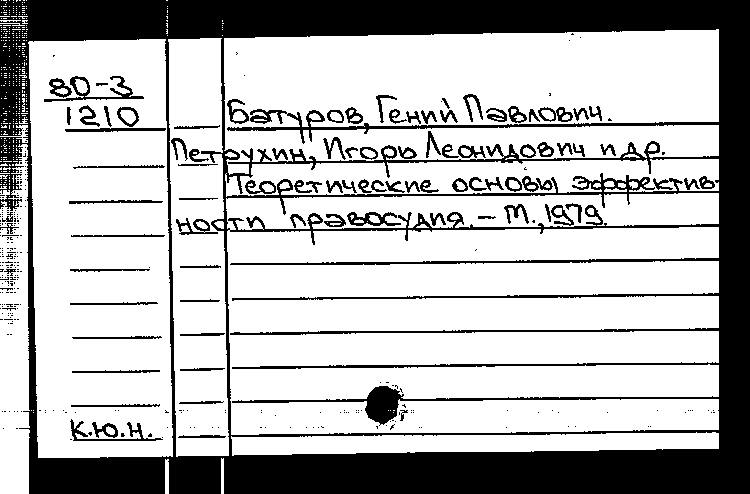 80-3
1210
Батуров, Гений Павлович.
Петрухин, Игорь Леонидович и др.
Теоретические основы эффектив-
ности правосудия. – М., 1979.
К.Ю.Н.